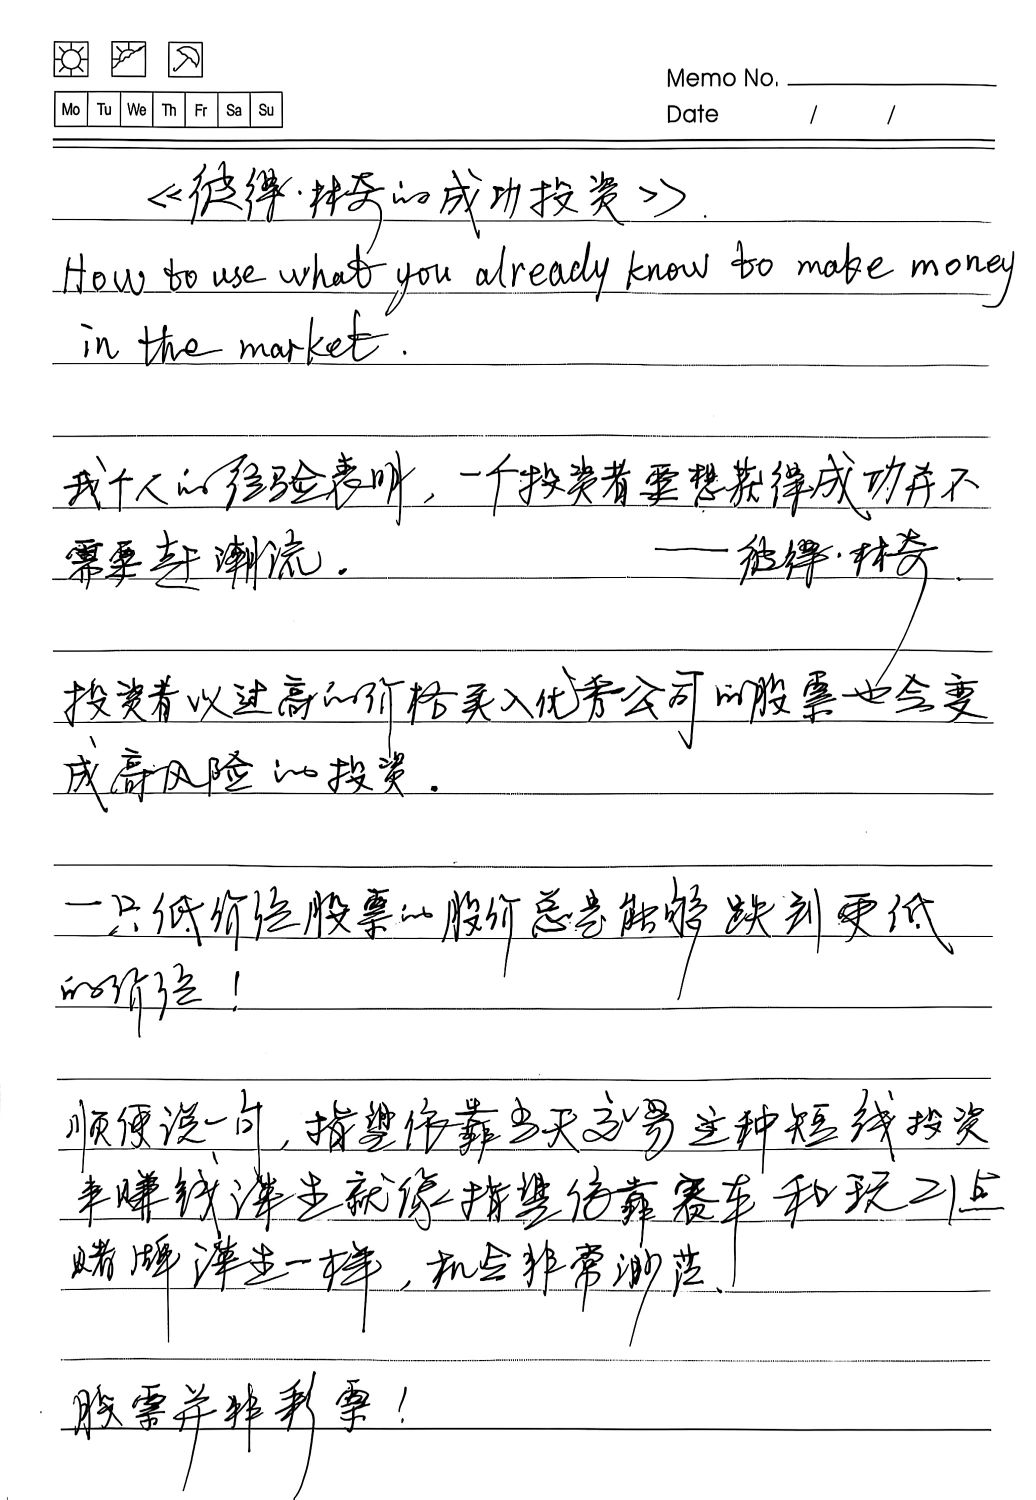 Memo No.
Mo Tu We Th Fr Sa Su
Date / /
《彼得·林奇的成功投资》.
How to use what you already know to make money
in the market.
我个人的经验表明,一个投资者要想获得成功并不
需要赶潮流.
——彼得·林奇.
投资者以过高的价格买入优秀公司的股票也会变
成高风险的投资.
一只低价位股票的股价总是能够跌到更低
的价位!
顺便说一句,指望依靠当天交易这种短线投资
来赚钱谋生就像指望依靠赛车和玩21点
赌牌谋生一样,机会非常渺茫.
股票并非彩票!